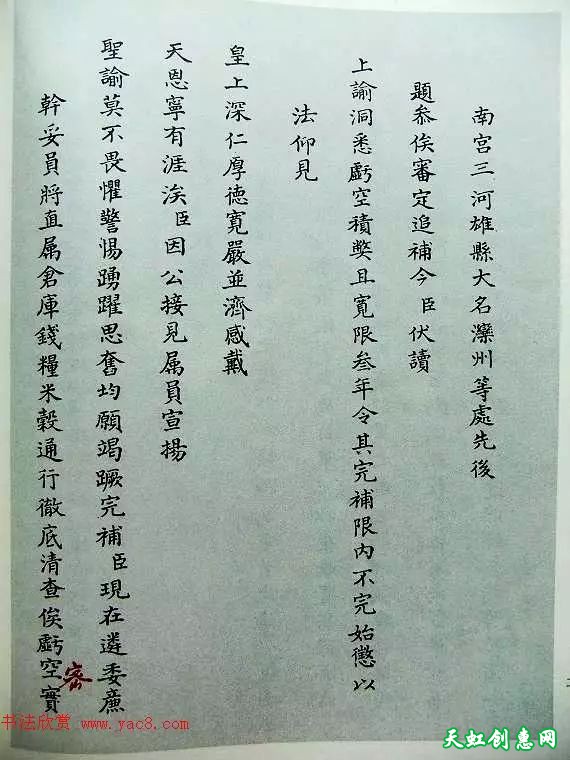 南宫三河雄縣大名灤州等處先後
題參俟審定追補今臣伏讀
上諭洞悉虧空積弊且寬限叁年令其完補限內不完始懲以
法仰見
皇上深仁厚德寬嚴並濟感戴
天恩寧有涯涘臣因公接見属員宣揚
聖諭莫不畏懼警惕踴躍思奮均願竭蹶完補臣現在遴委廉
幹妥員將直属倉庫錢糧米穀通行徹底清查俟虧空實
密
书法欣赏 www.yac8.com
天虹创惠网